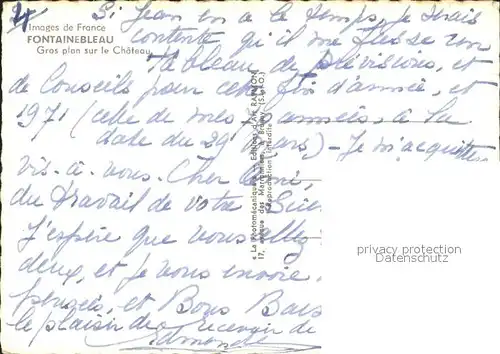 Images de France
FONTAINEBLEAU
Gros plan sur le Château
Si Jean en a le temps, je serais
contente qu'il me fasse un
Tableau, de prévisions, et
de Conseils pour cette fin d'année, et
1971 (celle de mes années, à la
date du 29 Mars) - Je m'acquitte
vis-à-vous. Cher
du Travail de votre
J'espère que vous allez
deux, et je vous envoie
pensées, et Bons
le plaisir de recevoir de
Edmonde
« La Photomécanique » - Editions d'Art
17,
Reproduction interdite
privacy protection
Datenschutz